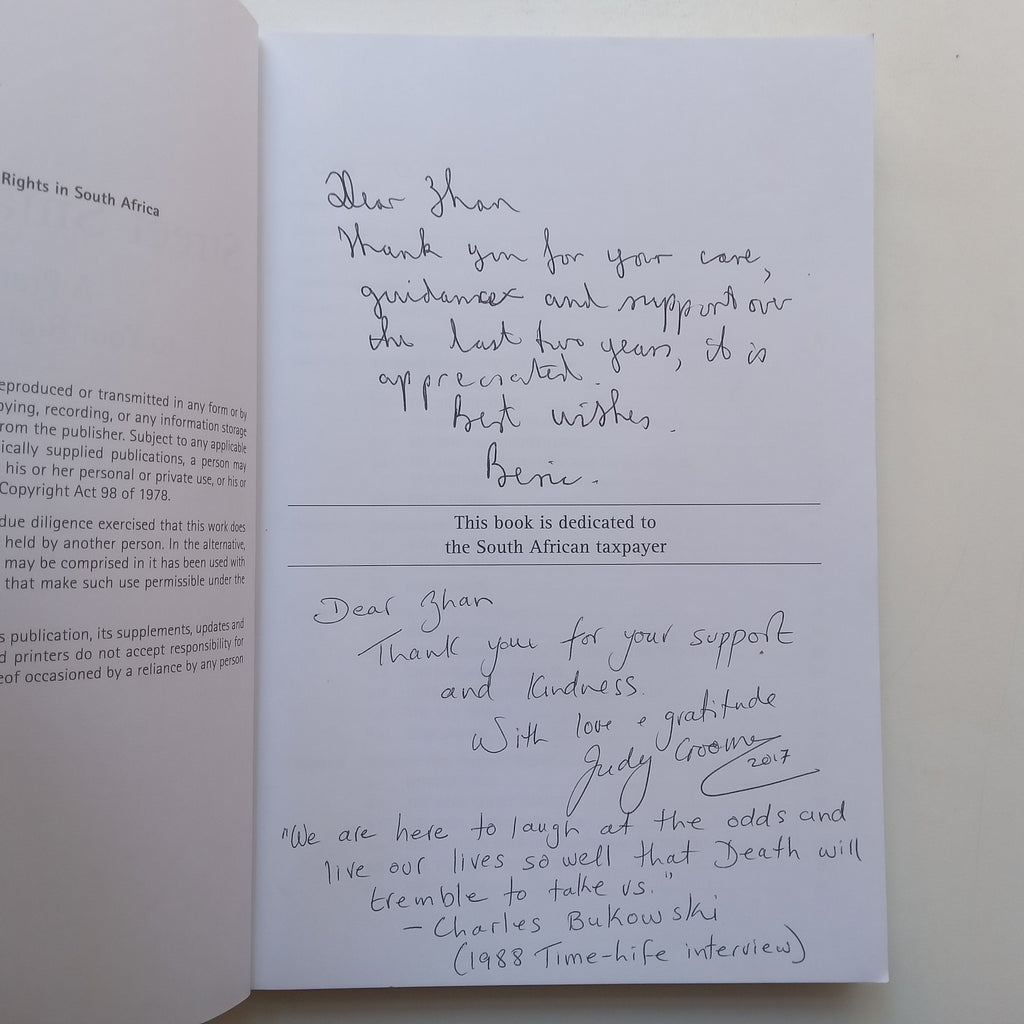 Rights in South Africa
eproduced or transmitted in any form or by
pying, recording, or any information storage
rom the publisher. Subject to any applicable
ically supplied publications, a person may
his or her personal or private use, or his or
Copyright Act 98 of 1978.
due diligence exercised that this work does
held by another person. In the alternative,
may be comprised in it has been used with
that make such use permissible under the
s publication, its supplements, updates and
d printers do not accept responsibility for
eof occasioned by a reliance by any person
Dear Zhan
Thank you for your care,
guidance and support over
the last two years, it is
appreciated.
Best wishes.
Beric.
This book is dedicated to
the South African taxpayer
Dear Zhan
Thank you for your support
and Kindness.
With love & gratitude
Judy Croome
2017
"We are here to laugh at the odds and
live our lives so well that Death will
tremble to take us."
- Charles Bukowski
(1988 Time-Life interview)